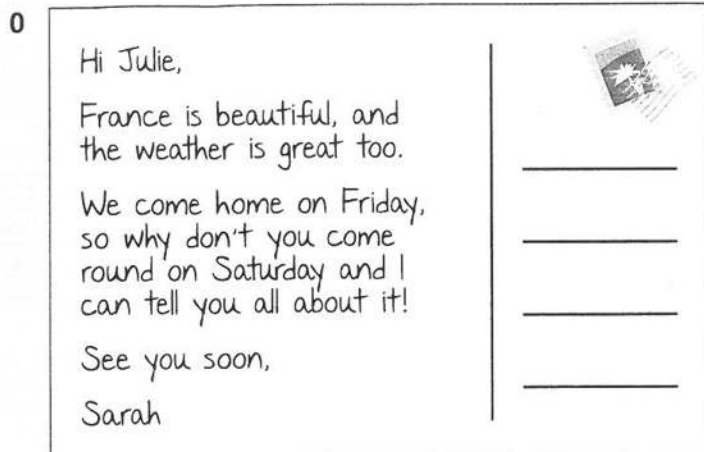 0
Hi Julie,
France is beautiful, and
the weather is great too.
We come home on Friday,
so why don't you come
round on Saturday and I
can tell you all about it!
See you soon,
Sarah